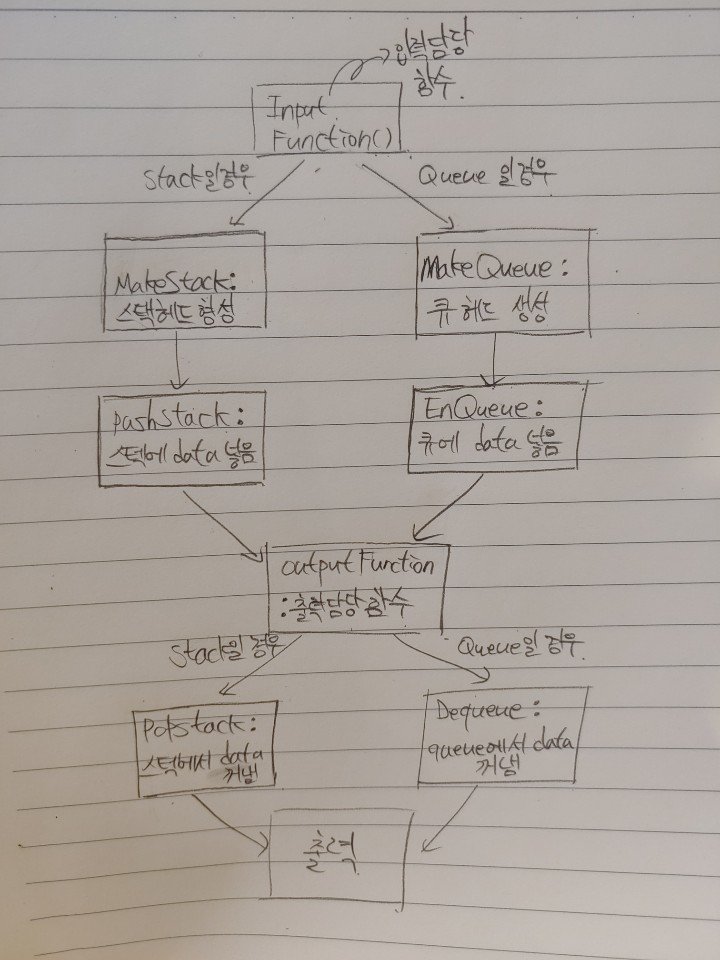 입력담당
함수.
Input
Function()
Stack일경우
Queue 일경우
MakeStack:
스택헤드 형성
MakeQueue:
큐 헤드 생성
pashstack:
스택에 data 넣음
EnQueue:
큐에 data 넣음
output Function
:출력담당 함수
Stack일 경우
Queue일 경우
Popstack:
스턱에서 data
꺼냄
Dequeue:
queue에서 data
꺼냄
출력